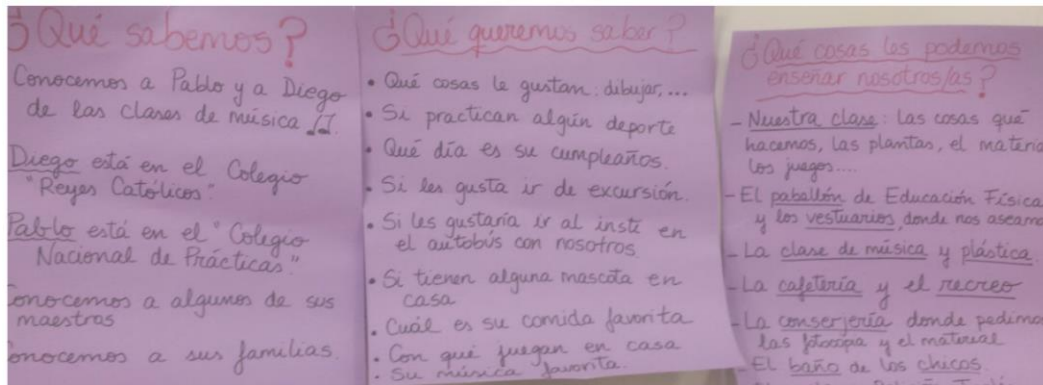 ¿Qué sabemos?
Conocemos a Pablo y a Diego
de las clases de música ♫.
Diego está en el Colegio
"Reyes Católicos".
Pablo está en el "Colegio
Nacional de Prácticas."
Conocemos a algunos de sus
maestros
Conocemos a sus familias.
¿Qué queremos saber?
• Qué cosas le gustan: dibujar,...
• Si practican algún deporte
• Qué día es su cumpleaños.
• Si les gusta ir de excursión.
• Si les gustaría ir al insti en
el autobús con nosotros.
• Si tienen alguna mascota en
casa
• Cuál es su comida favorita
• Con qué juegan en casa
• Su música favorita.
¿Qué cosas les podemos
enseñar nosotros/as?
- Nuestra clase: las cosas qué
hacemos, las plantas, el materia
los juegos....
- El pabellón de Educación Física
y los vestuarios, donde nos aseamo
- La clase de música y plástica.
- La cafetería y el recreo
- La conserjería donde pedimo
las fotocopia y el material
- El baño de los chicos.